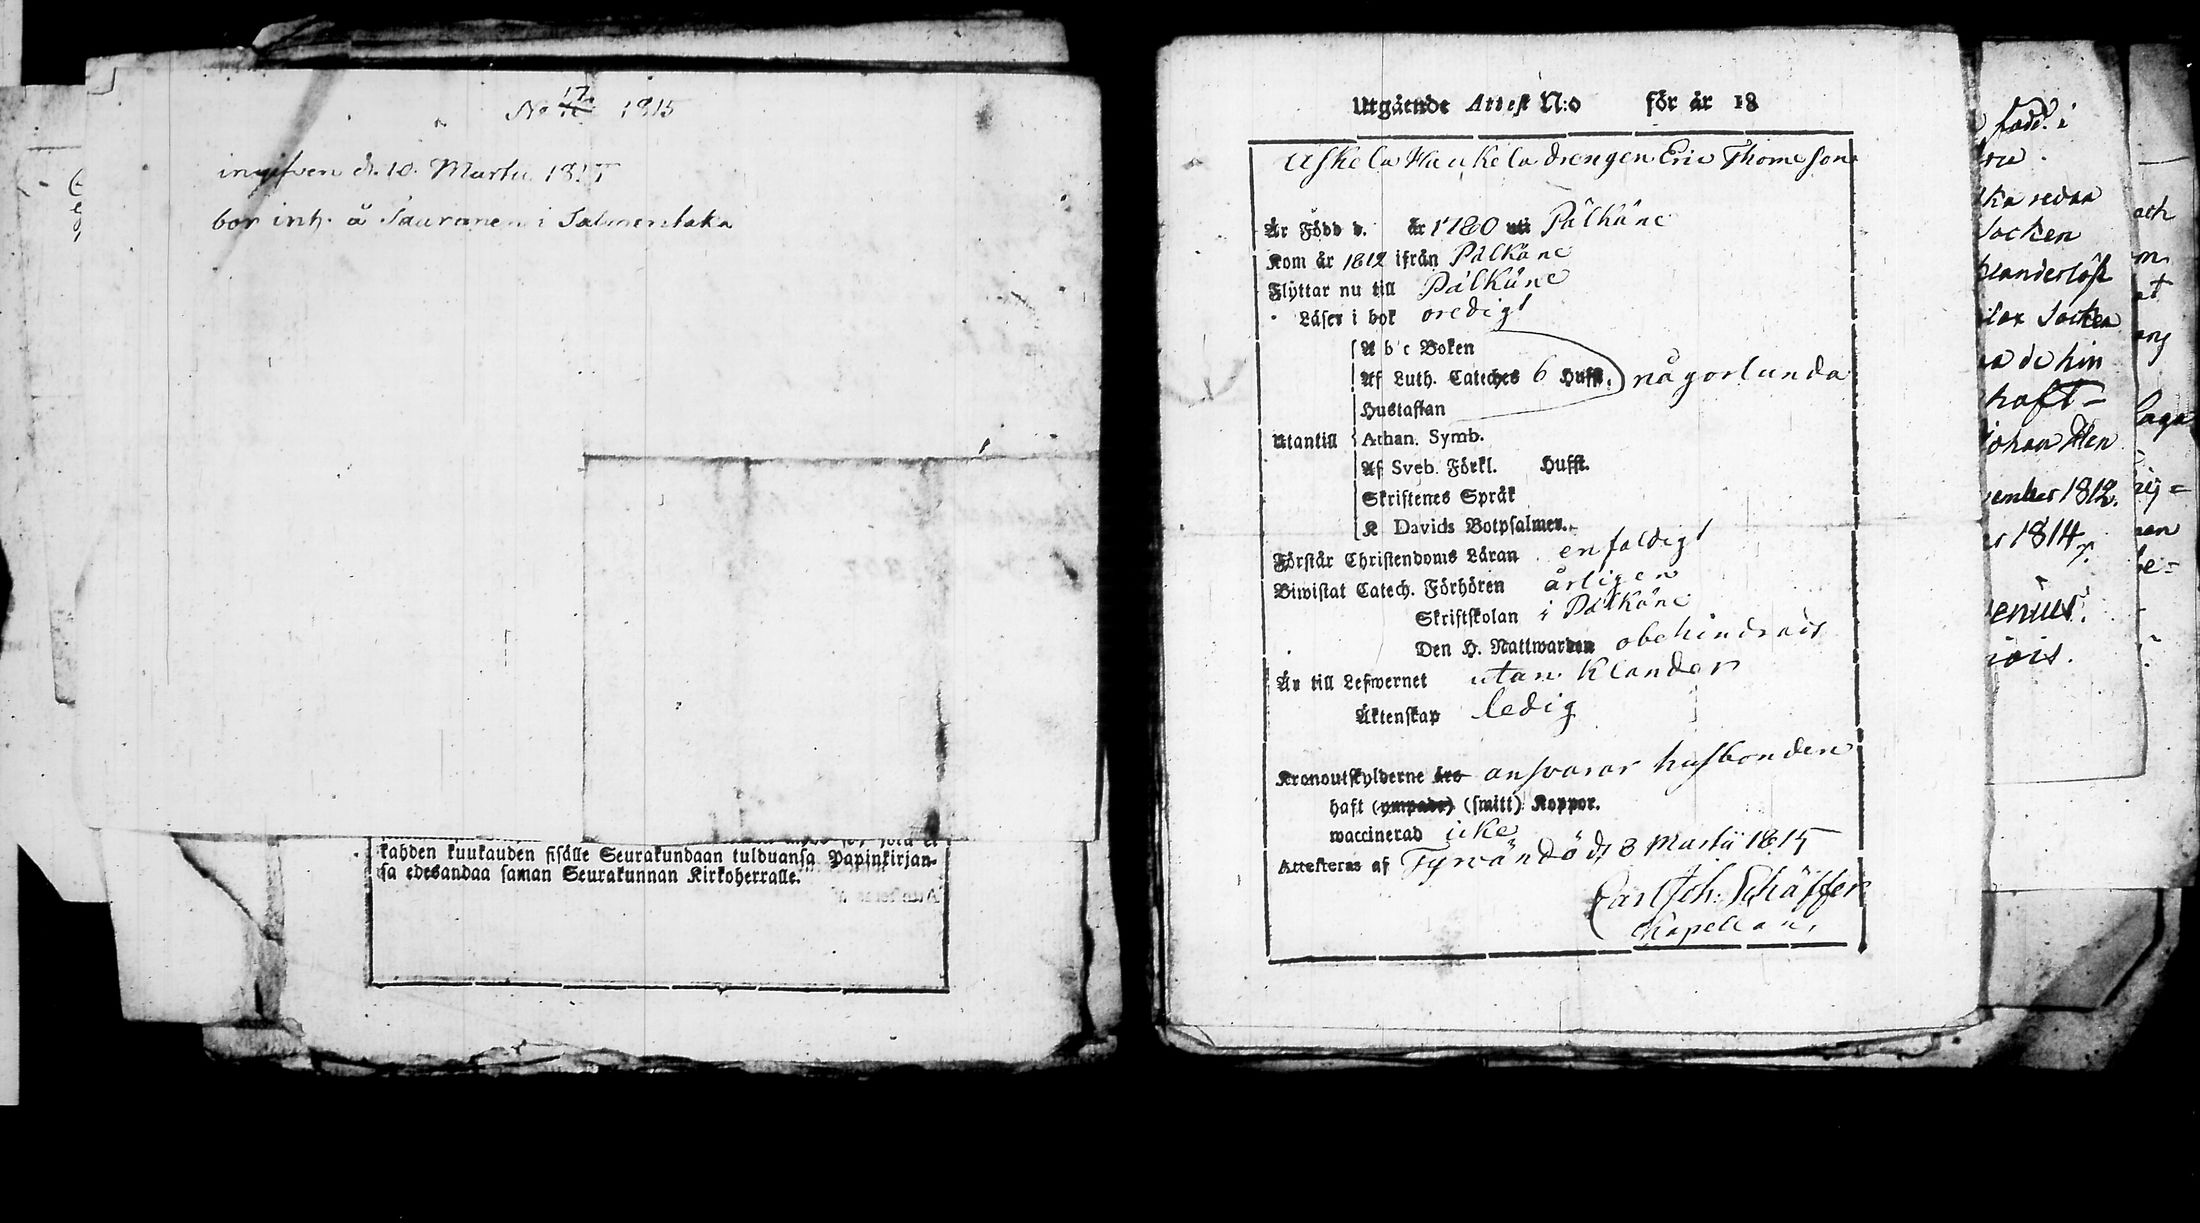 No 17 1815
ingifven d. 10. Martii 1815
bor inh. å Sauranen i Salmentaka
kahden kuukauden sisälle Seurakundaan tulduansa Papinkirjan-
sa edesandaa saman Seurakunnan Kirkoherralle.
Utgående Attest N:o för år 18
Uskela Haukela drengen Eric Thomesson
Är Född d. år 1780 uti Pälkäne
Kom år 1812 ifrån Pälkäne
Flyttar nu till Pälkäne
Läser i bok oredigt
A b c Boken
Af Luth. Cateches 6 Hufst. någorlunda
Hustaflan
Utantill Athan. Symb.
Af Sveb. Förkl. Hufst.
Skriftenes Språk
K Davids Botpsalmer.
Förstår Christendoms Läran enfaldigt
Biwistat Catech. Förhören årligen
Skriftskolan i Pälkäne
Den H. Nattwarden obehindrad
Är till Lefwernet utan klander
Äktenskap ledig
Kronoutskylderne års ansvarar husbonden
haft (ympade) (smitt) Koppor.
waccinerad icke
Attesteras af Tyrvändö d. 8 Martii 1815
Carl Joh. Schäffer
Chapellan.
född i
ka redan
Socken
Socken
de hin
haft=
Johan
ember 1812.
1814